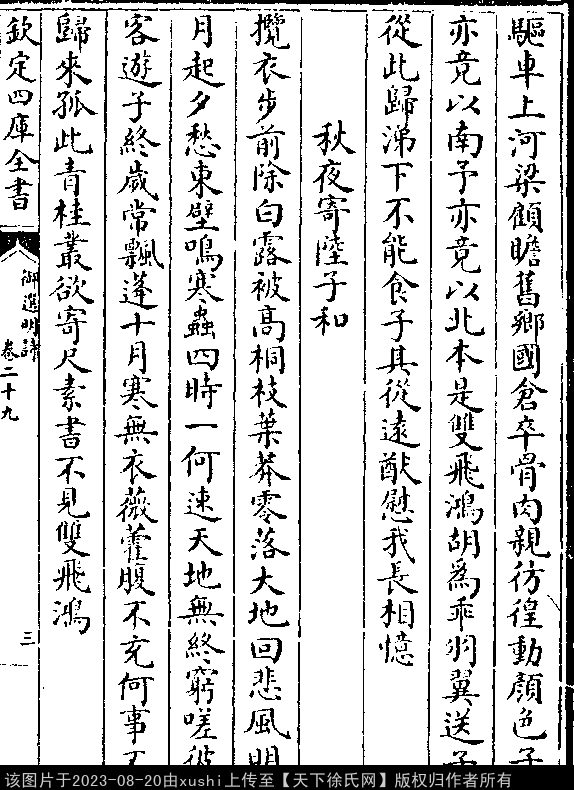 驅車上河梁顧瞻舊鄉國倉卒骨肉親彷徨動顏色子
亦竟以南予亦竟以北本是雙飛鴻胡爲乖羽翼送子
從此歸涕下不能食子其從遠猷慰我長相憶
秋夜寄陸子和
攬衣步前除白露被高桐枝葉莽零落大地回悲風明
月起夕愁東壁鳴寒蟲四時一何速天地無終窮嗟彼
客遊子終歲常飄蓬十月寒無衣薇藿腹不充何事不
歸來孤此青桂叢欲寄尺素書不見雙飛鴻
欽定四庫全書
御選明詩
卷二十九
三
该图片于2023-08-20由xushi上传至【天下徐氏网】版权归作者所有